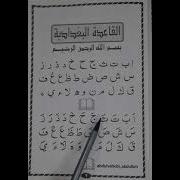 القاعدة البغدادية
بسم الله الرحمن الرحيم
ا ب ت ث ج ح خ د ذ ر ز
س ش ص ض ط ظ ع غ ف
ق ك ل م ن و ه لا ء ي
ا ب ت ث ج ح خ د ذ ر ز
س ش ص ض ط ظ ع غ ف
ق ك ل م ن و ه لا ء ي